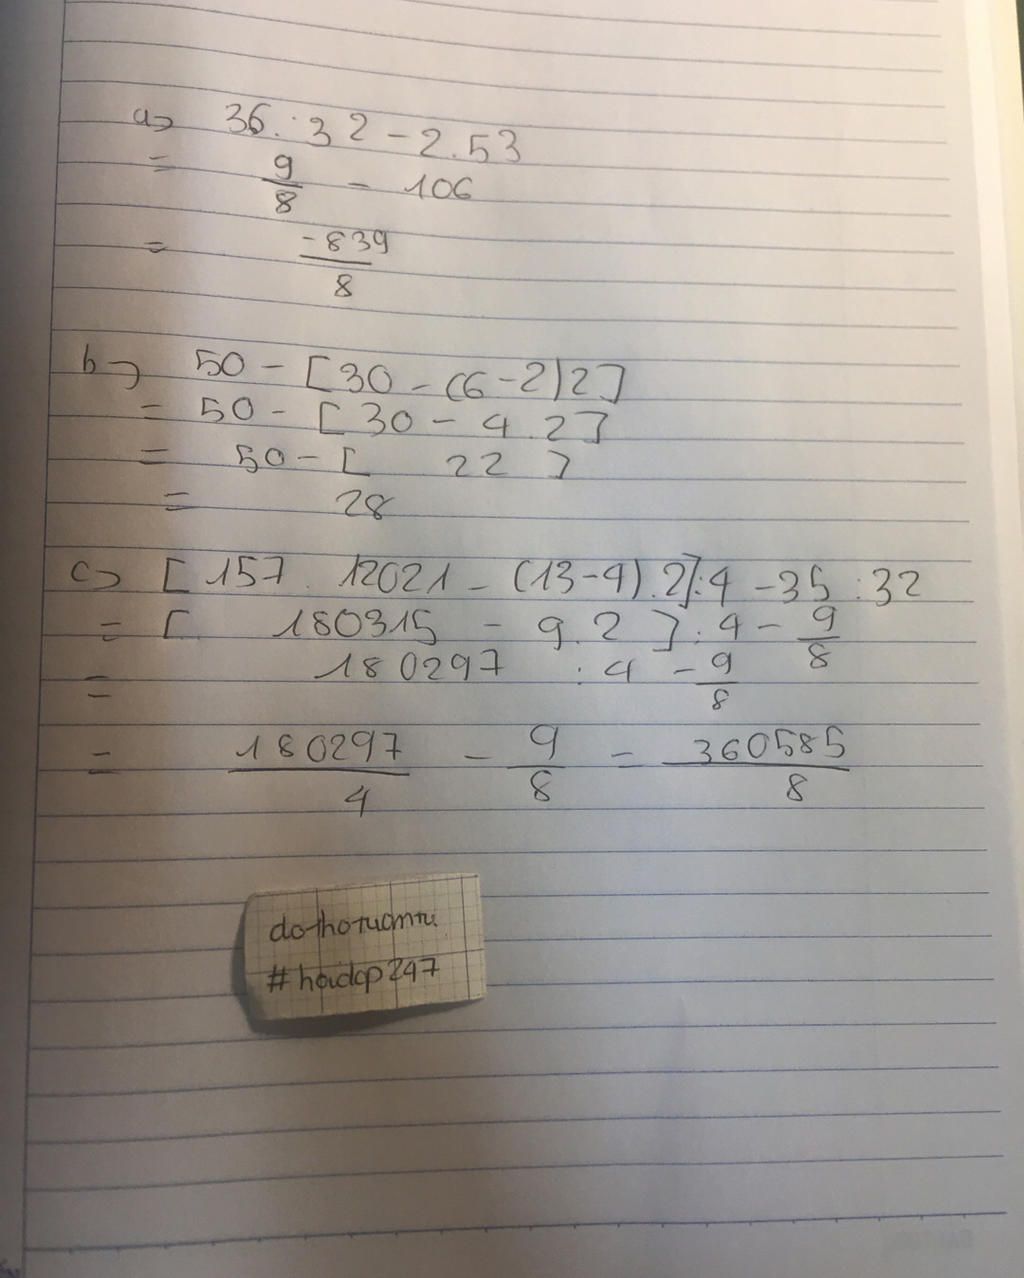 a) 36 : 32 - 2.53
= 9/8 - 106
= -839/8
b) 50 - [30 - (6-2)2]
= 50 - [30 - 4.2]
= 50 - [ 22 ]
= 28
c) [157 . 12021 - (13-4).2]:4 - 35 : 32
= [ 180315 - 9.2 ] : 4 - 9/8
= 180297 : 4 - 9/8
= 180297/4 - 9/8 = 360585/8
#hoidap247